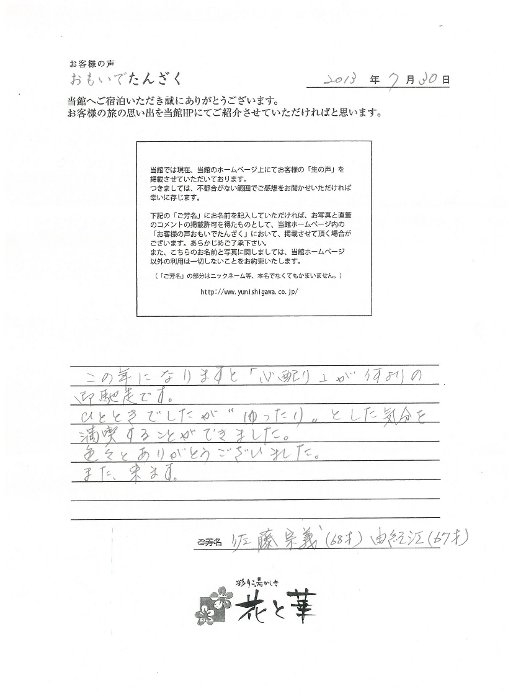 お客様の声
おもいでたんざく
2013 年 7 月 30 日
当館へご宿泊いただき誠にありがとうございます。
お客様の旅の思い出を当館HPにてご紹介させていただければと思います。
当館では現在、当館のホームページ上にてお客様の「生の声」を
掲載させていただいております。
つきましては、不都合がない範囲でご感想をお聞かせいただければ
幸いに存じます。
下記の「ご芳名」にお名前を記入していただければ、お写真と直筆
のコメントの掲載許可を得たものとして、当館ホームページ内の
「お客様の声おもいでたんざく」において、掲載させて頂く場合が
ございます。あらかじめご了承下さい。
また、こちらのお名前と写真に関しましては、当館ホームページ
以外の利用は一切しないことをお約束いたします。
(「ご芳名」の部分はニックネーム等、本名でなくてもかまいません。)
http://www.yunishigawa.co.jp/
この年になりますと「心配り」が何よりの
御馳走です。
ひとときでしたが〝ゆったり〟とした気分を
満喫することができました。
色々とありがとうございました。
また、来ます。
ご芳名 佐藤宗義(68才) 由紀江(67才)
彩り湯かしき
花と華